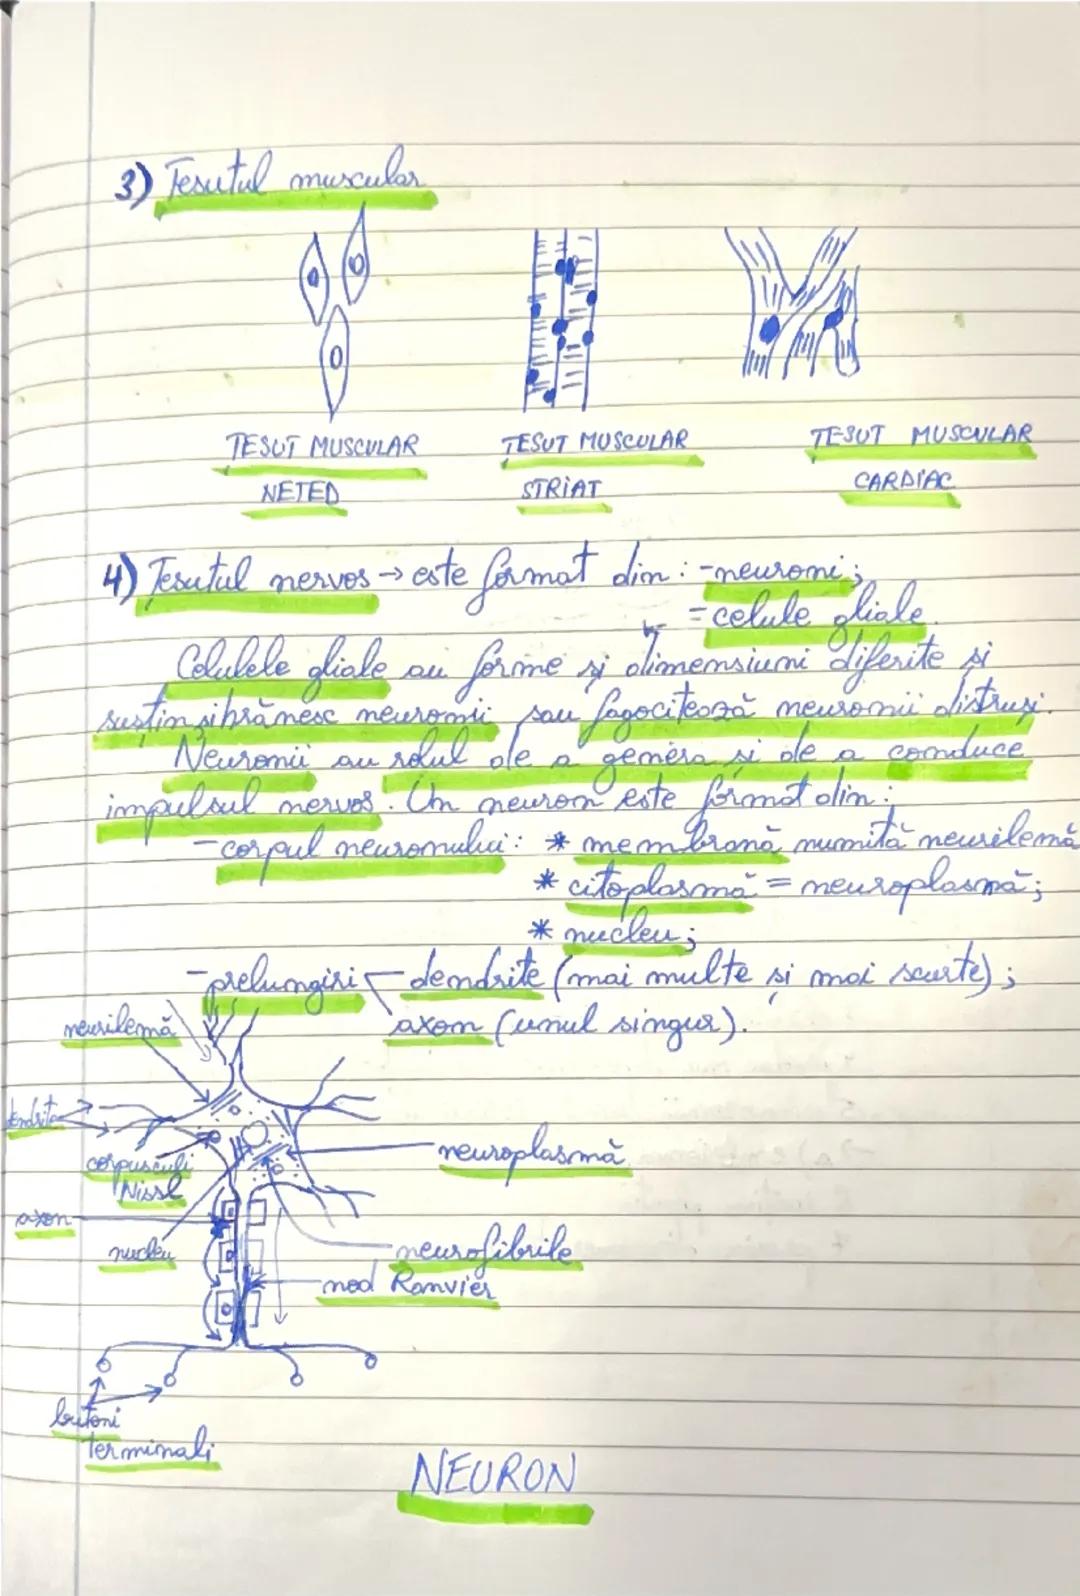 3) Țesutul muscular
ȚESUT MUSCULAR
NETED
ȚESUT MUSCULAR
STRIAT
ȚESUT MUSCULAR
CARDIAC
4) Țesutul nervos → este format din: - neuroni;
- celule gliale.
Celulele gliale au forme și dimensiuni diferite și
susțin și hrănesc neuronii sau fagocitează neuronii distruși.
Neuronii au rolul de a genera și de a conduce
impulsul nervos. Un neuron este format din:
- corpul neuronului: * membrană numită neurilemă
* citoplasmă = neuroplasmă;
* nucleu;
- prelungiri dendrite (mai multe și mai scurte);
axon (unul singur).
neurilemă
dendrite
corpusculi
Nissl
axon
nucleu
neuroplasmă
neurofibrile
nod Ranvier
butoni
terminali
NEURON